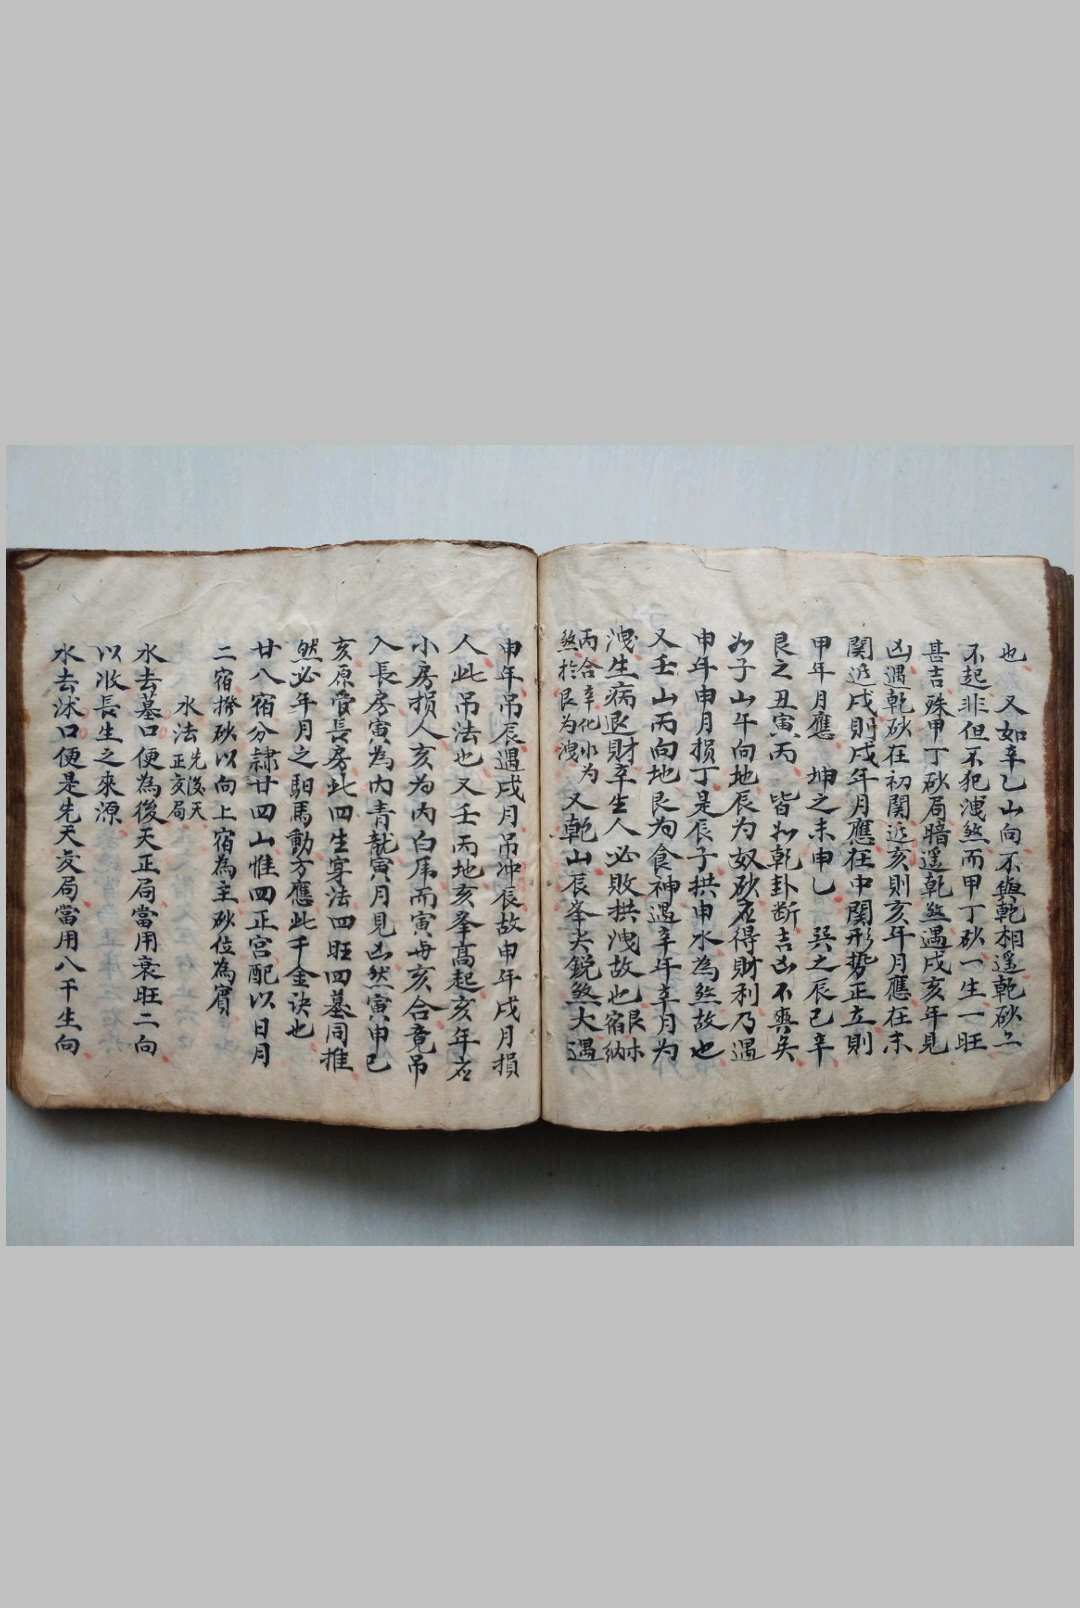 也 又如辛乙山向不與乾相逢乾砂亦
不起非但不犯洩煞而甲丁砂一生一旺
甚吉殊甲丁砂局暗逢乾煞遇戌亥年見
凶遇乾砂在初関近亥則亥年月應在末
関近戌則戌年月應在中関形勢正立則
甲年月應 坤之未申乙 巽之辰巳辛
艮之丑寅丙 皆如乾卦断吉凶不爽矣
如子山午向地辰为奴砂応得財利乃遇
申年申月損丁是辰子拱申水為煞故也
又壬山丙向地艮为食神遇辛年辛月为
洩生病退財卒生人必敗拱洩故也宿納
丙合辛化水为
煞於艮为洩 又乾山辰峯尖銳煞大遇
申年吊辰遇戌月吊冲辰故申年戌月損
人此吊法也又壬丙地亥峯高起亥年応
小房損人亥为内白虎而寅毋亥合竟吊
入長房寅為内青龍寅月見凶然寅申巳
亥原管長房此四生穿法四旺四墓同推
然必年月之馹馬動方應此千金诀也
廿八宿分隷廿四山惟四正宫配以日月
二宿撥砂以向上宿為主砂位為賓
水法先後天
正变局
水去墓口便為後天正局當用衰旺二向
以收長生之來源
水去沐口便是先天变局當用八干生向